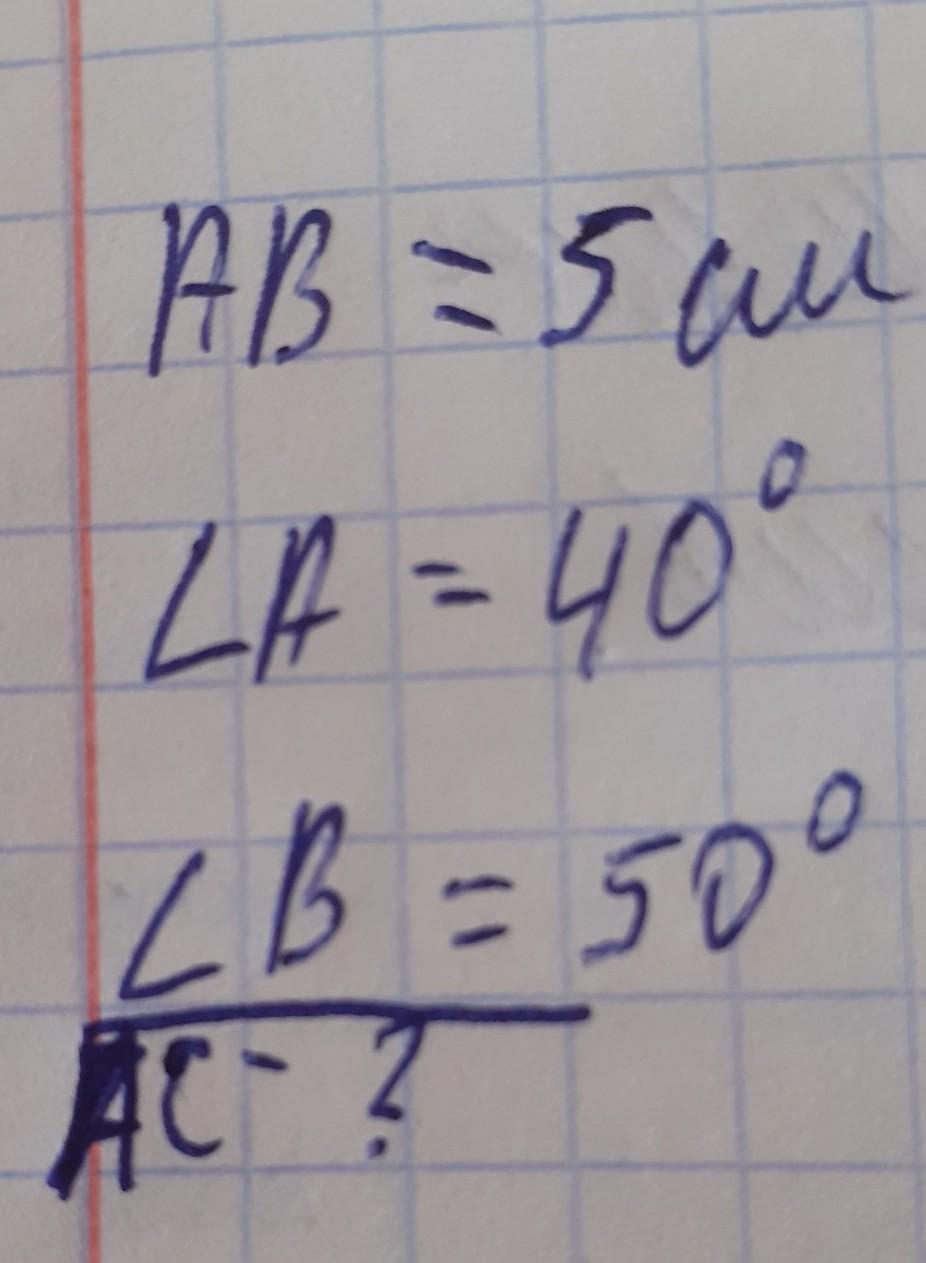 AB = 5 см
∠A = 40°
∠B = 50°
AC - ?